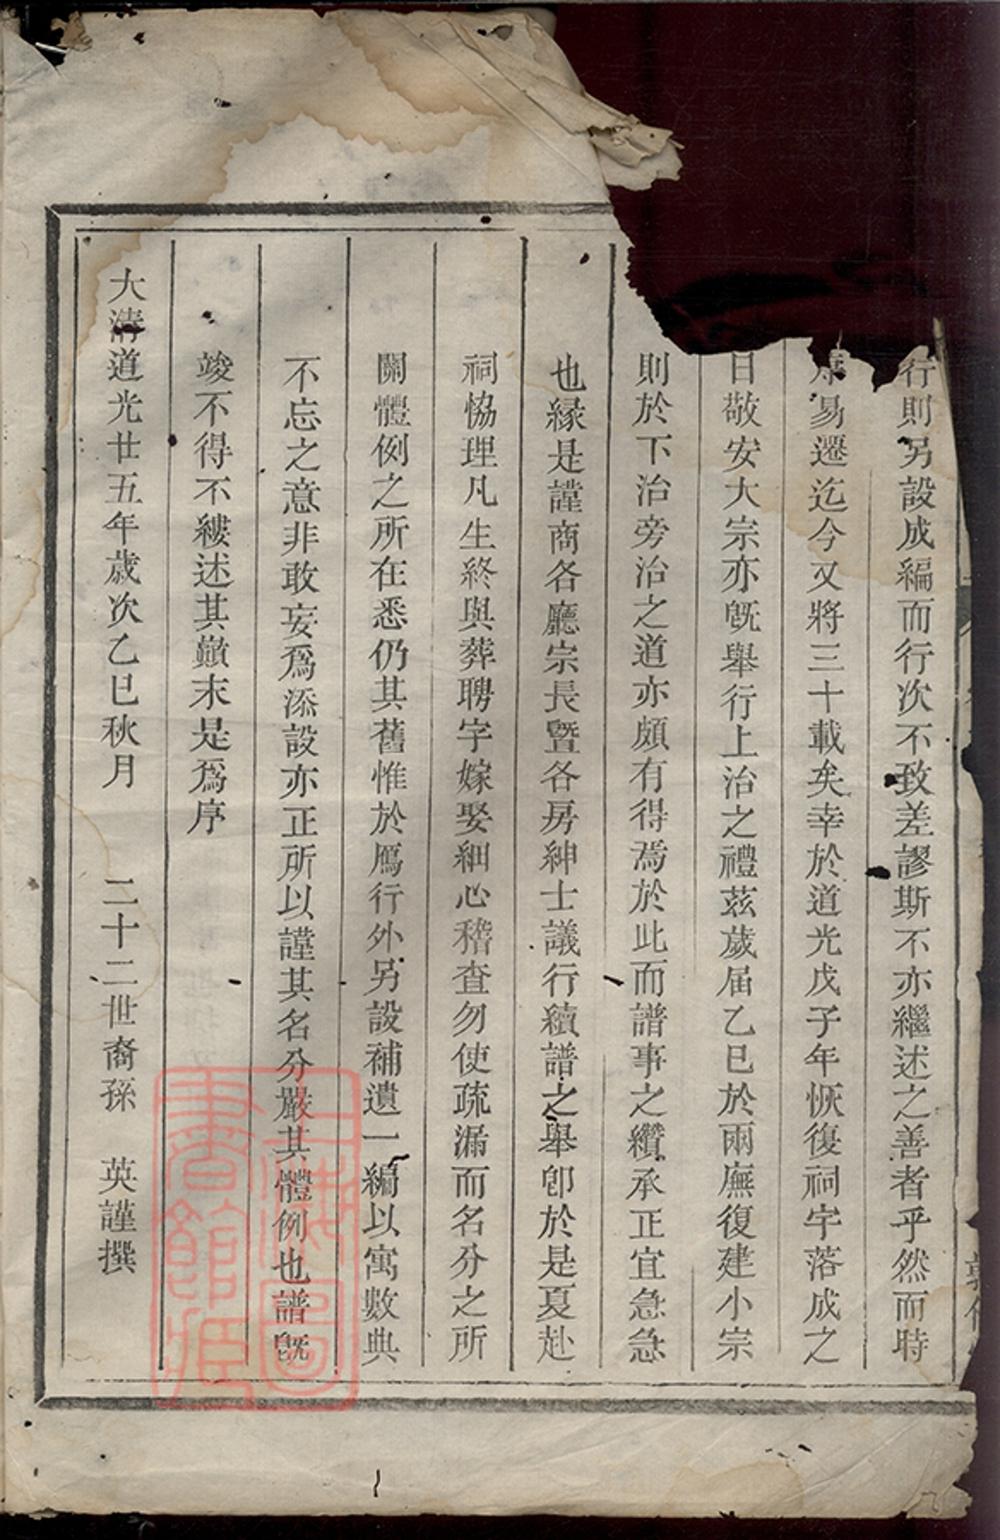 行則另設成編而行次不致差謬斯不亦繼述之善者乎然而時
易遷迄今又將三十載矣幸於道光戊子年恢復祠宇落成之
日敬安大宗亦旣舉行上治之禮茲歲届乙巳於兩廡復建小宗
則於下治旁治之道亦頗有得焉於此而譜事之纘承正宜急急
也縁是謹商各廳宗長暨各房紳士議行續譜之舉卽於是夏赴
祠恊理凡生終與葬聘字嫁娶細心稽查勿使疏漏而名分之所
關體例之所在悉仍其舊惟於鴈行外另設補遺一編以寓數典
不忘之意非敢妄爲添設亦正所以謹其名分嚴其體例也譜旣
竣不得不縷述其巔末是爲序
大清道光廿五年歲次乙巳秋月 二十二世裔孫 英謹撰
上海圖書館藏